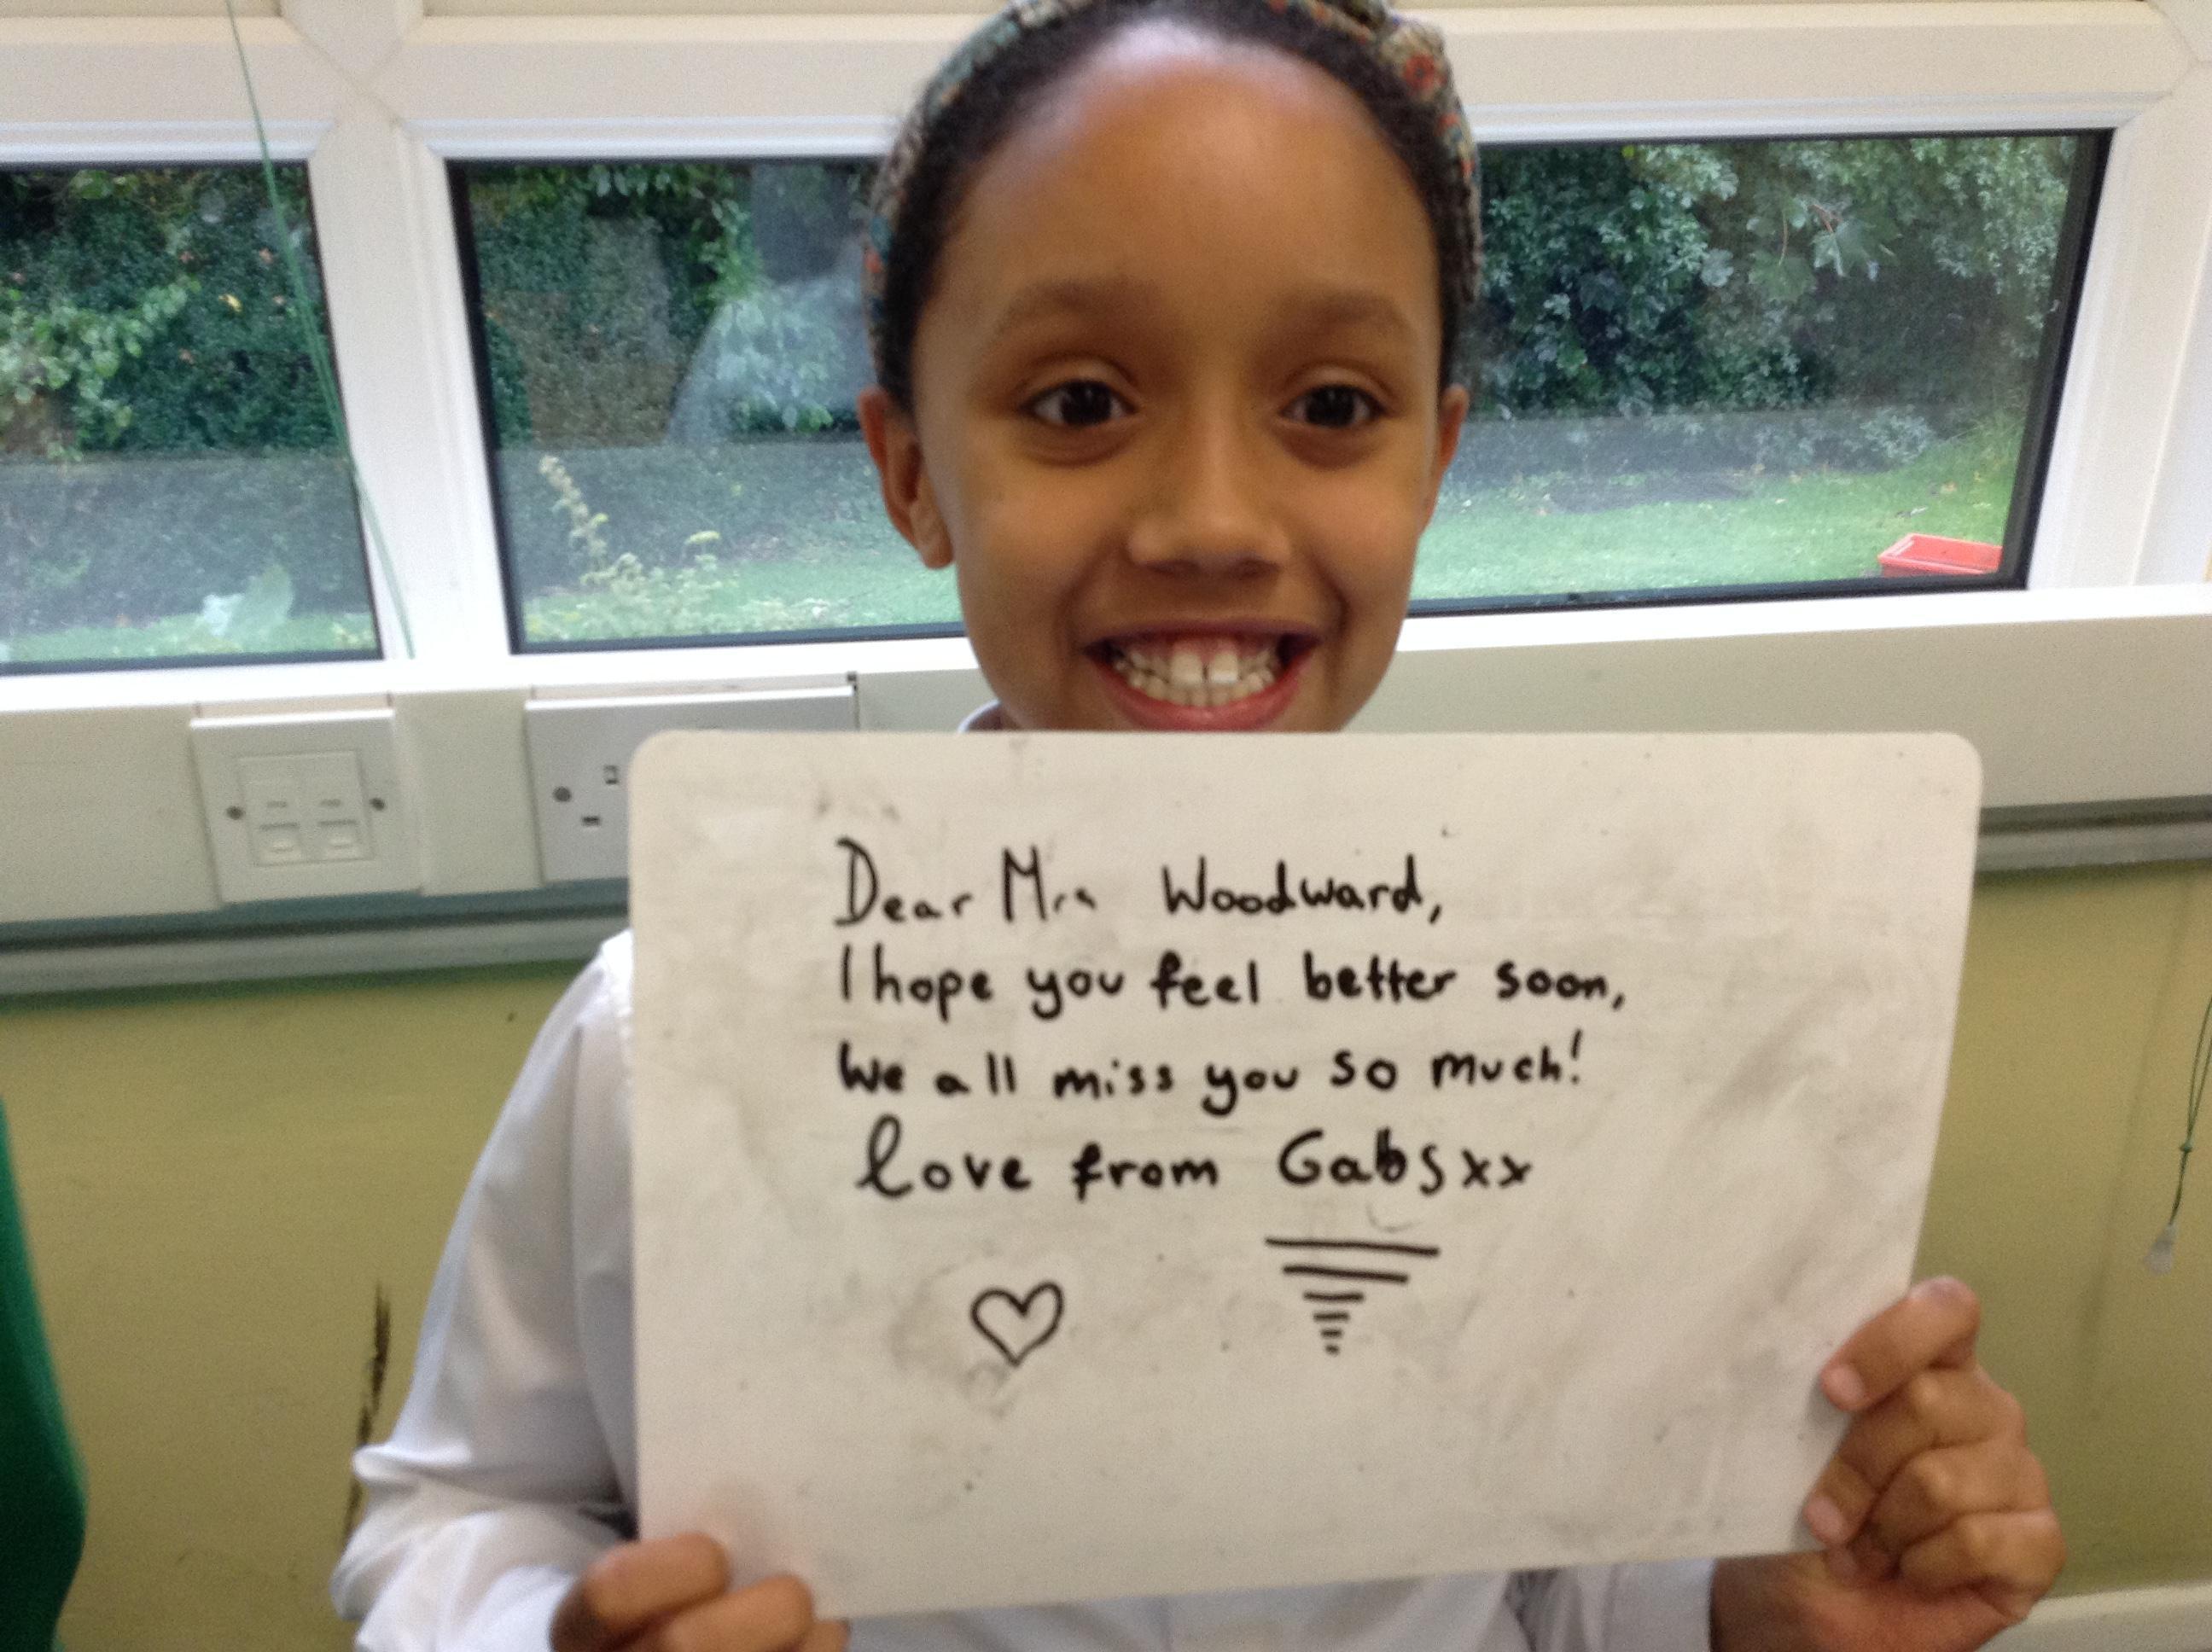 Dear Mrs Woodward,
I hope you feel better soon,
We all miss you so much!
love from Gabsxx